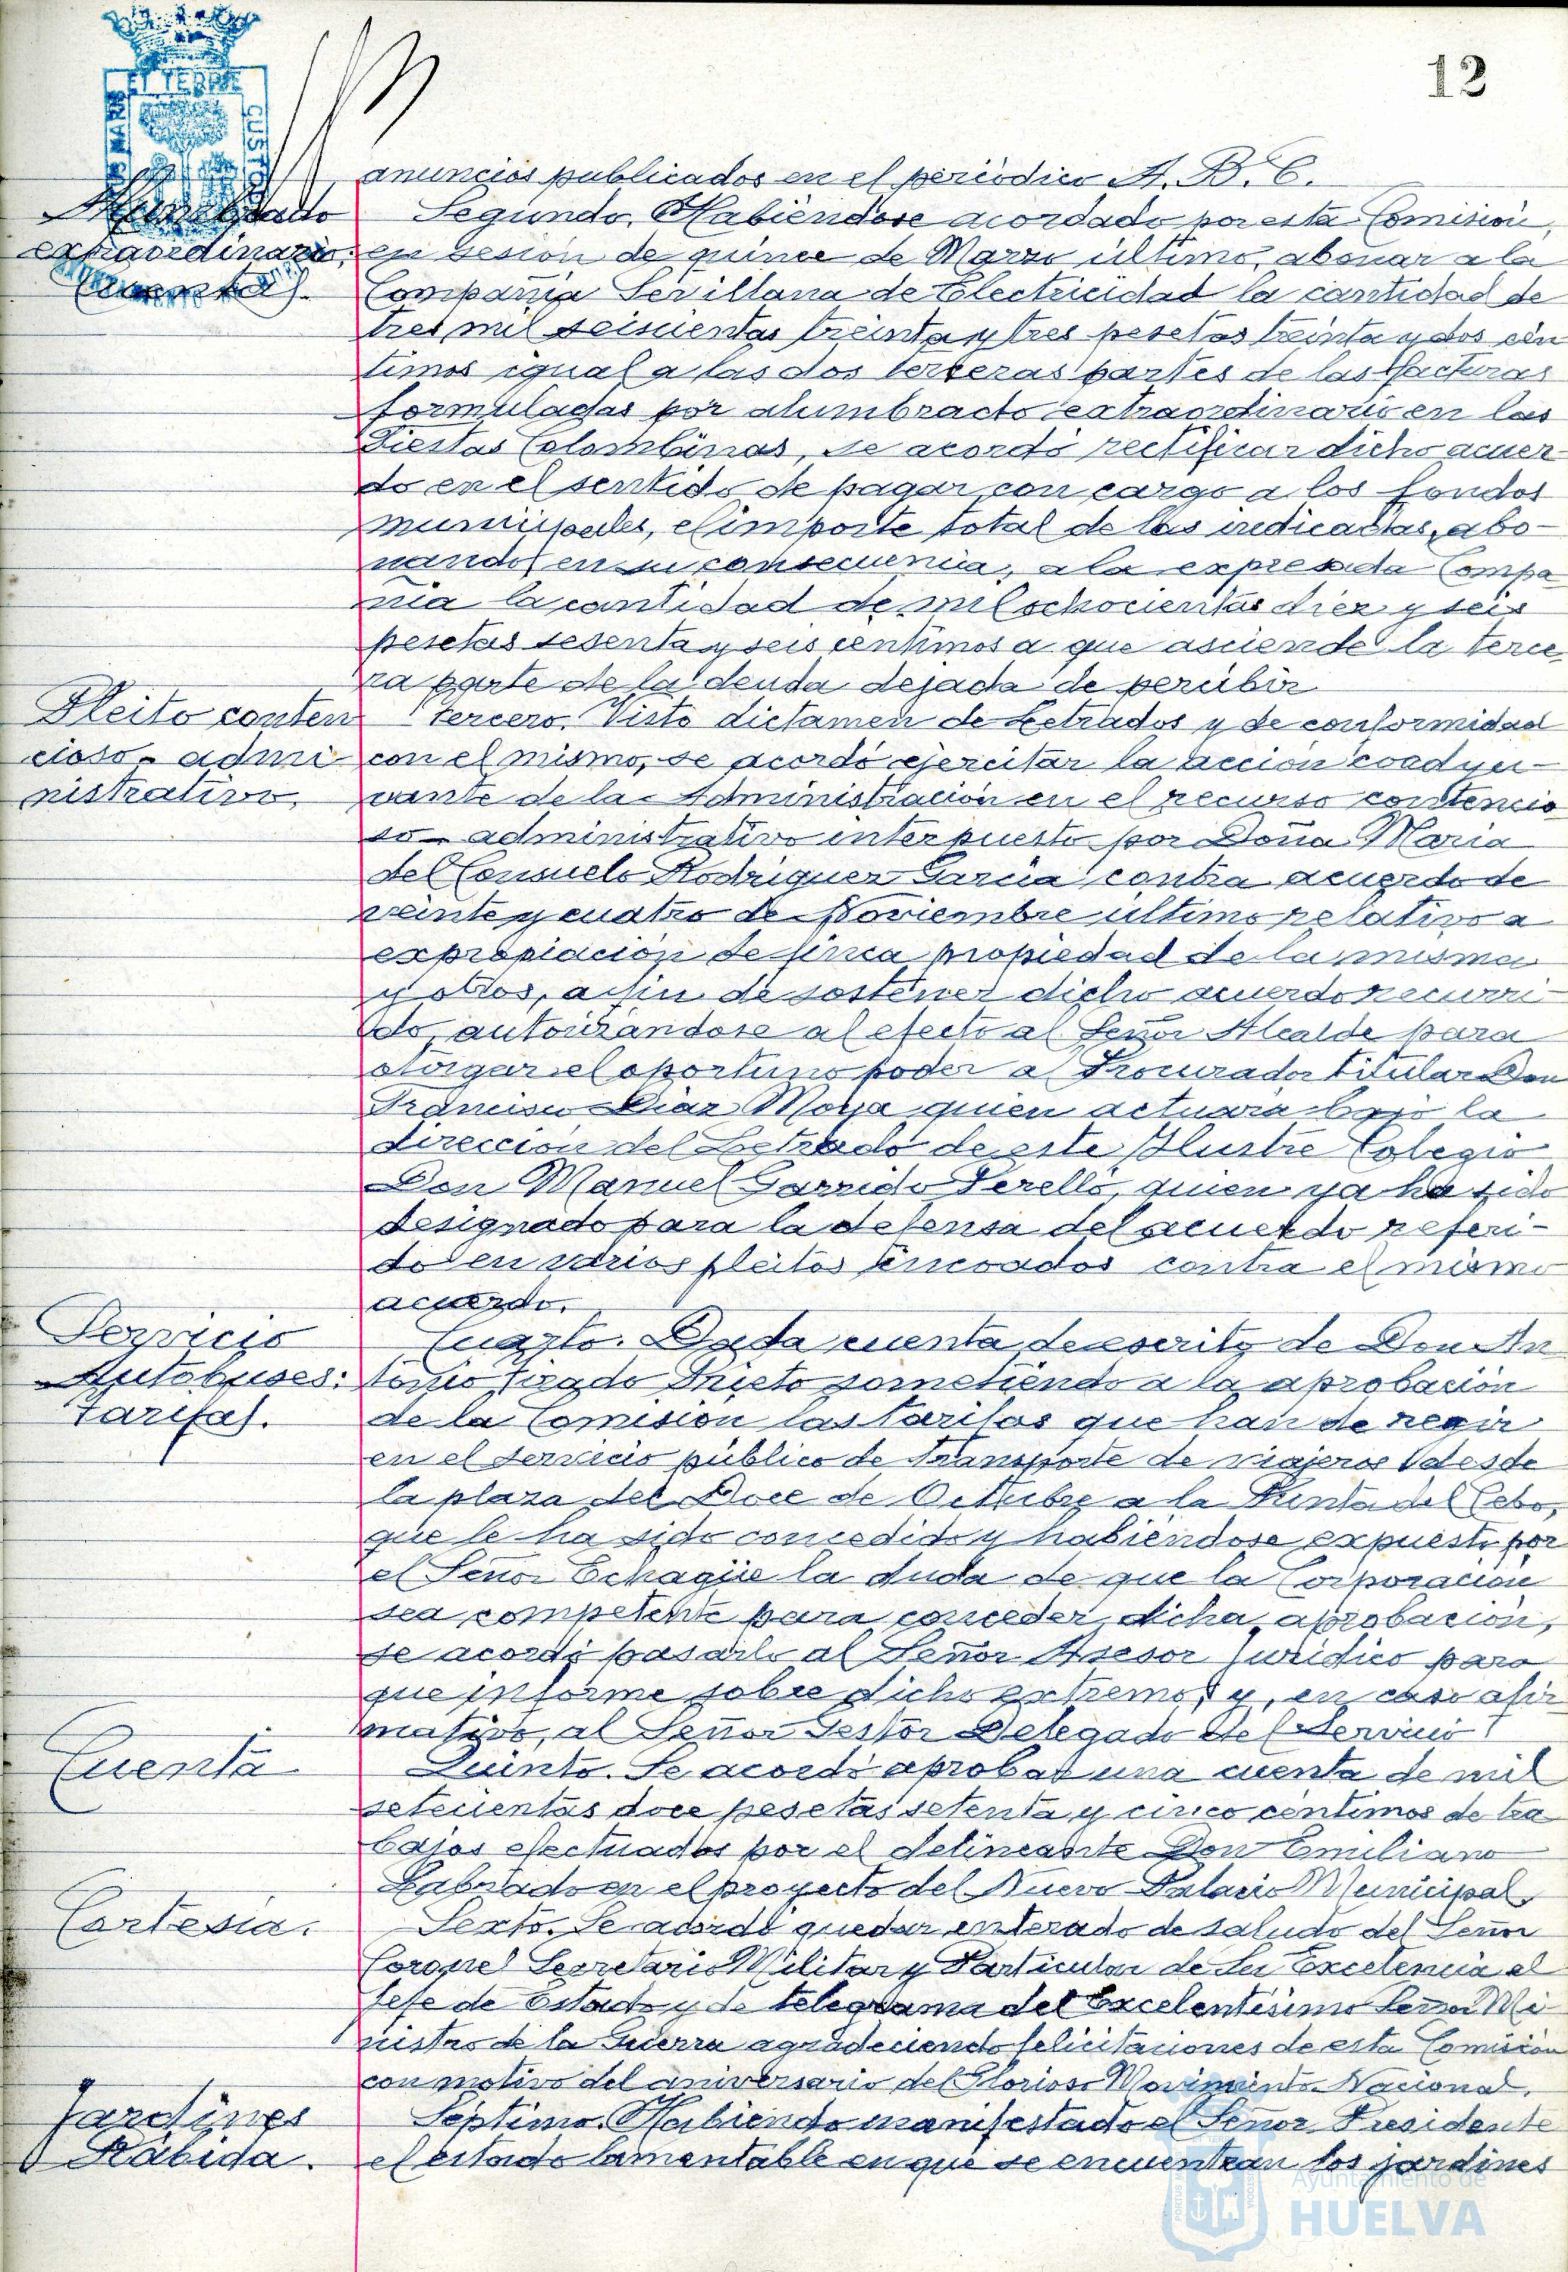 12
ET TERRE
CUSTO
anuncios publicados en el periódico A. B. C.
Alumbrado
extraordinario:
(cuenta).
Segundo. Habiéndose acordado por esta Comisión,
en sesión de quince de Marzo último, abonar a la
Compañia Sevillana de Electricidad la cantidad de
tres mil seiscientas treinta y tres pesetas treinta y dos cén
timos igual a las dos terceras partes de las facturas
formuladas por alumbrado extraordinario en las
Fiestas Colombinas, se acordó rectificar dicho acuer-
do en el sentido de pagar con cargo a los fondos
municipales, el importe total de las indicadas, abo-
nandos en su consecuencia, a la expresada Compa
ñia la cantidad de mil ochocientas diez y seis
pesetas sesenta y seis centimos a que asciende la terce
ra parte de la deuda dejada de percibir
Pleito conten
cioso-admi
nistrativo.
Tercero. Visto dictamen de Letrados y de conformidad
con el mismo, se acordó ejercitar la acción coadyu-
vante de la Administración en el recurso contencio
so-administrativo interpuesto por Doña Maria
del Consuelo Rodriguez Garcia contra acuerdo de
veinte y cuatro de Noviembre último relativo a
expropiación de finca propiedad de la misma
y otros, a fin de sostener dicho acuerdo recurri-
do, autorizandose al efecto al Señor Alcalde para
otorgar el oportuno poder al Procurador titular Don
Francisco Diaz Moya quien actuará bajo la
dirección del Letrado de este Ilustre Colegio
Don Manuel Garrido Perelló, quien ya ha sido
designado para la defensa del acuerdo referi-
do en varios pleitos incoados contra el mismo
acuerdo.
Servicio
Autobuses:
tarifas.
Cuarto. Dada cuenta de escrito de Don An
tonio Tirado Prieto sometiendo a la aprobación
de la Comisión las tarifas que han de regir
en el servicio público de transporte de viajeros desde
la plaza del Doce de Octubre a la Punta del Cebo,
que le ha sido concedido y habiéndose expuesto por
el Señor Echagüe la duda de que la Corporación
sea competente para conceder dicha aprobación,
se acordó pasarlo al Señor Asesor Juridico para
que informe sobre dicho extremo, y, en caso afir
mativo, al Señor Gestor Delegado del Servicio
Cuenta
Quinto. Se acordó aprobar una cuenta de mil
setecientas doce pesetas setenta y cinco centimos de tra
bajos efectuados por el delineante Don Emiliano
Labrado en el proyecto del Nuevo Palacio Municipal.
Cortesia.
Sexto. Se acordó quedar enterado de saludo del Señor
Coronel Secretario Militar y Particular de Su Excelencia el
Jefe de Estado y de telegrama del Excelentisimo Señor Mi
nistro de la Guerra agradeciendo felicitaciones de esta Comisión
con motivo del aniversario del Glorioso Movimiento Nacional.
Jardines
Rábida.
Septimo. Habiendo manifestado el Señor Presidente
el estado lamentable en que se encuentran los jardines
Ayuntamiento de
HUELVA